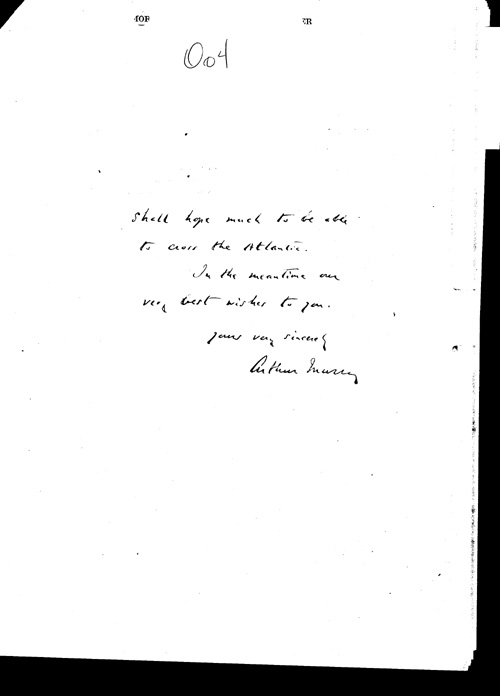 40F
004
shall hope much to be able
to cross the Atlantic.
In the meantime our
very best wishes to you.
yours very sincerely
Arthur Murray